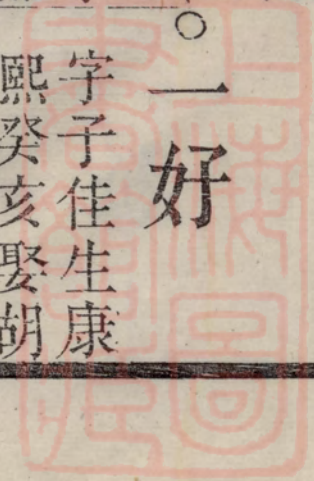 。一好
字子佳生康
熙癸亥娶胡